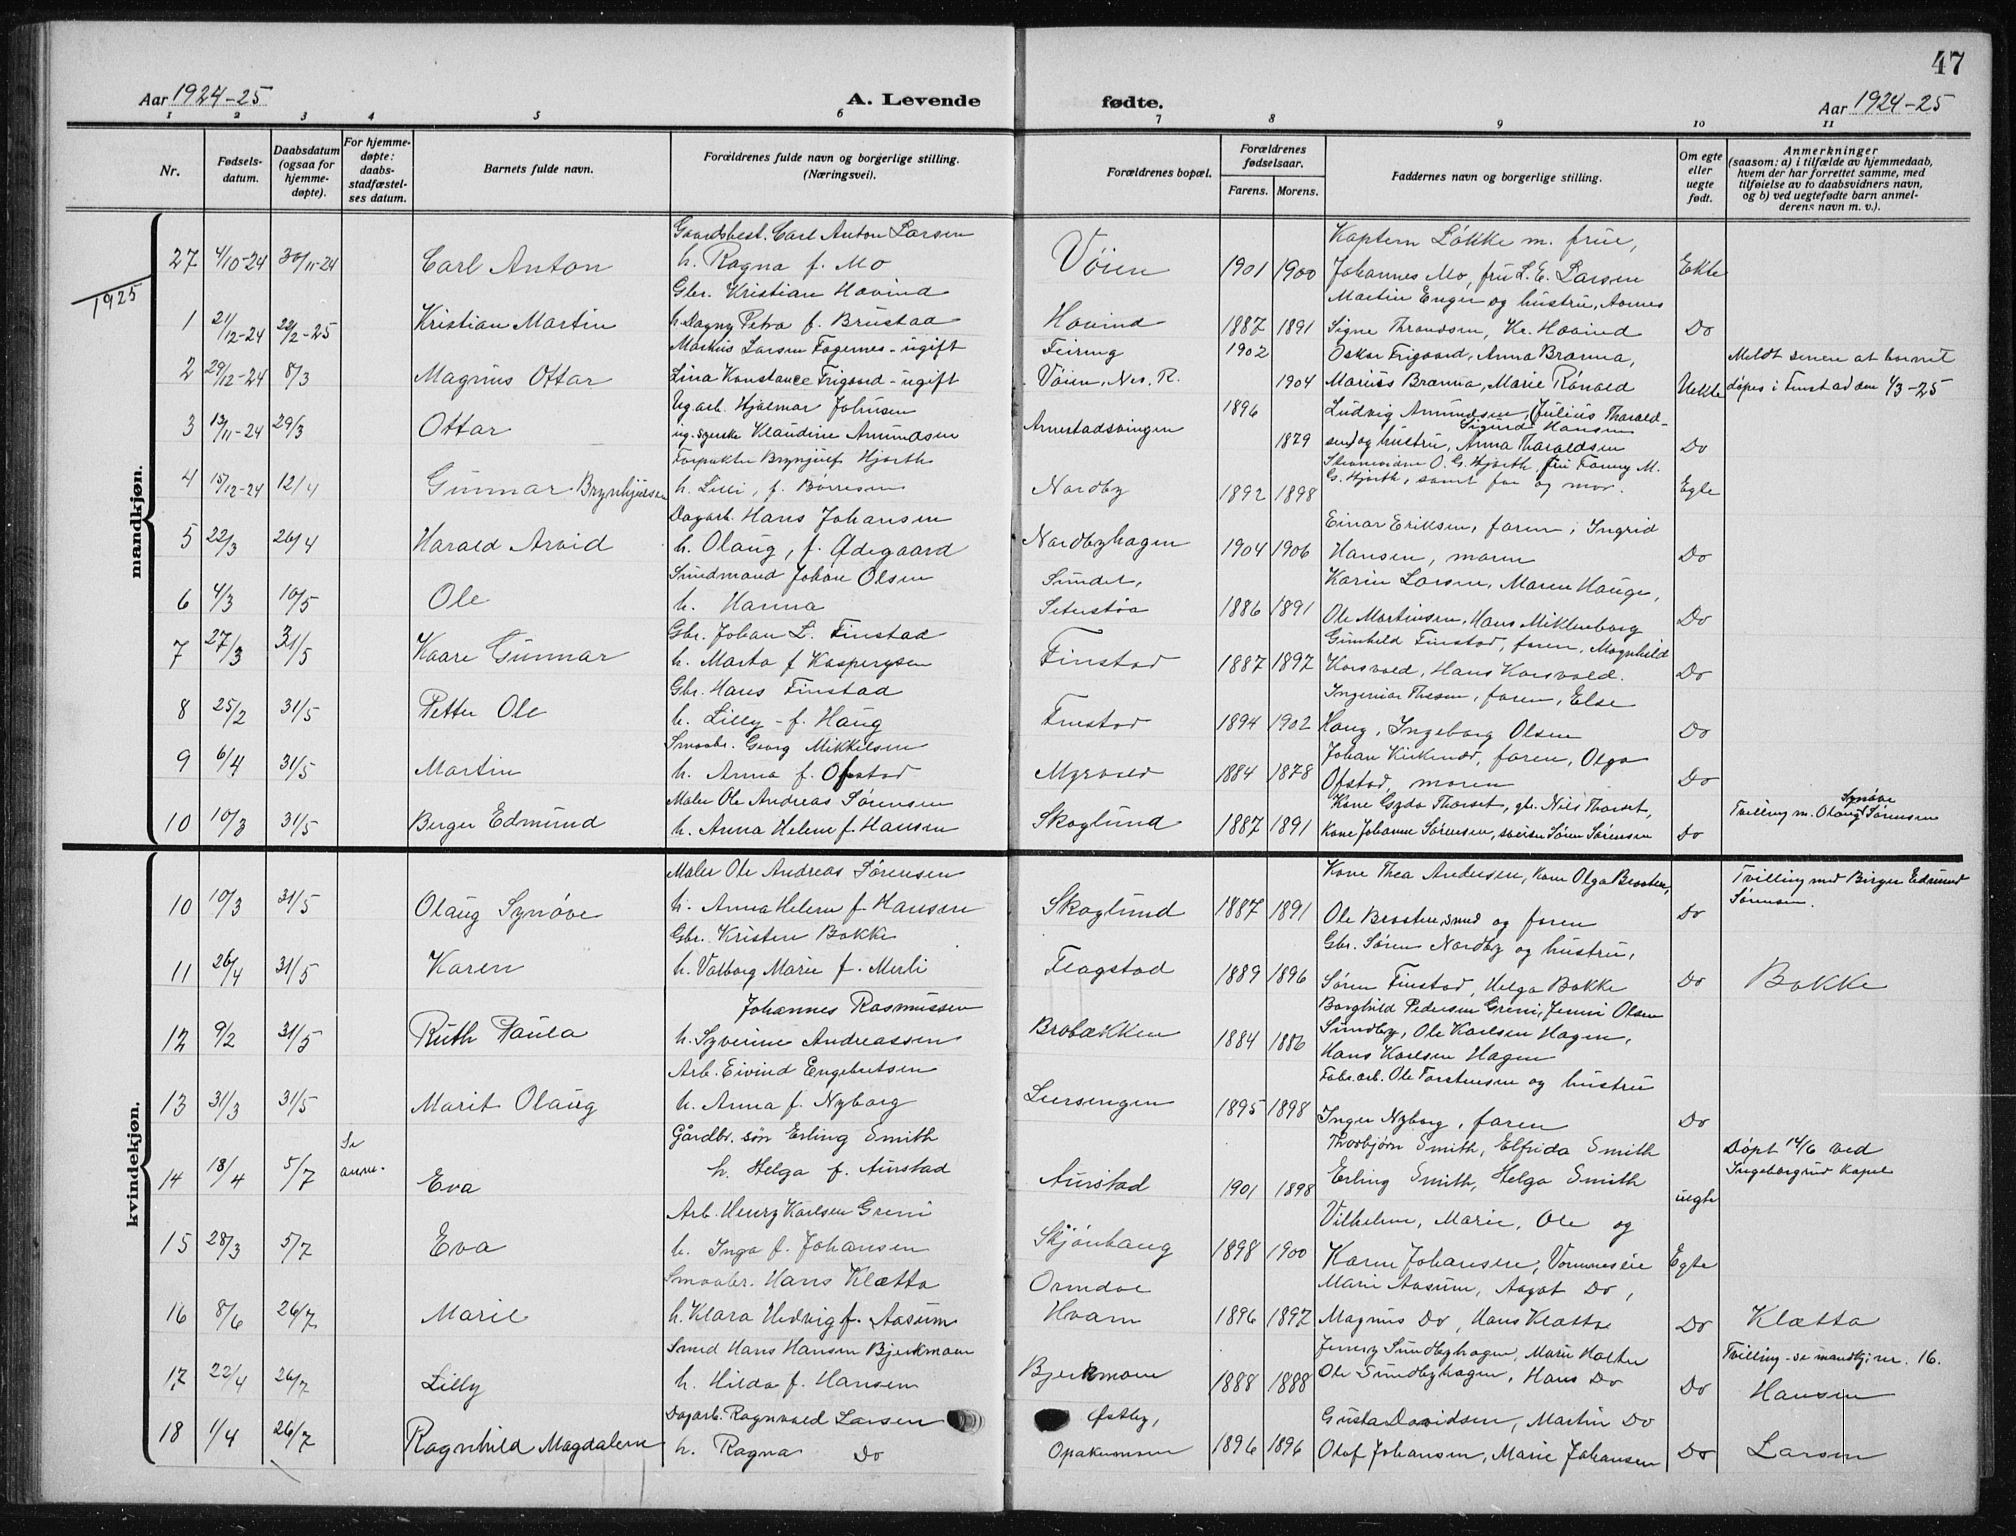 47
Aar 1924-25 A. Levende fødte. Aar 1924-25
1 2 3 4 5 6 7 8 9 10 11
Nr. Fødsels-datum. Daabsdatum (ogsaa for hjemme-døpte). For hjemme-døpte: daabs-stadfæstel-ses datum. Barnets fulde navn. Forældrenes fulde navn og borgerlige stilling. (Næringsvei). Forældrenes bopæl. Forældrenes fødselsaar. Farens. Morens. Faddernes navn og borgerlige stilling. Om egte eller uegte født. Anmerkninger (saasom: a) i tilfælde av hjemmedaab, hvem der har forrettet samme, med tilføielse av to daabsvidners navn, og b) ved uegtefødte barn anmel-derens navn m. v.).
mandkjøn.
Gaardsbest. Carl Anton Larsen Kaptein Løkke m. frue,
27 4/10-24 30/11-24 Carl Anton h. Ragna f. Mo Vøien 1901 1900 Johannes Mo, fru L. E. Larsen Ekte
1925
Gbr. Kristian Hovind Martin Enger og hustru, Aarnes
1 21/12-24 22/2-25 Kristian Martin h. Dagny Petra f. Brustad Hovind 1887 1891 Signe Throndsen, Kr. Hovind Do
Markus Larsen Fagernes - ugift Feiring 1902 Oskar Frigaard, Anna Brænna, Meldt senere at barnet
2 29/12-24 8/3 Magnus Ottar Lina Konstance Frigaard - ugift Vøien, Nes. R. 1904 Marius Brænna, Marie Rånåld Uekte døpes i Finstad den 1/3-25
Ug. arb. Hjalmar Johnsen 1896 Ludvig Amundsen, Julius Tharald-
Sigurd Hansen
3 13/11-24 29/3 Ottar ug. syerske Klaudine Amundsen Arnestadsvingen 1879 sen og hustru, Anna Tharaldsen Do
Forpakter Brynjulf Hjorth O. G. Hjorth, fru Fanny M.
4 15/12-24 12/4 Gunnar Brynhjulsen h. Lilli, f. Børresen Nordby 1892 1898 G. Hjorth, samt far og mor. Egte
Dagarb. Hans Johansen Einar Eriksen, faren, Ingrid
5 22/3 26/4 Harald Arvid h. Olaug, f. Ødegaard Nordbyhagen 1904 1906 Hansen, moren Do
Sundmand Johan Olsen Sundet, Karin Larsen, Maren Hauge,
6 4/3 10/5 Ole h. Hanna Seterstøa 1886 1891 Ole Martinsen, Hans Miklenborg Do
Gbr. Johan L. Finstad Gunhild Finstad, faren, Magnhild
7 27/3 31/5 Kaare Gunnar h. Marta f Kaspersen Finstad 1887 1897 Korsvold, Hans Korsvold. Do
Gbr. Hans Finstad Ingemar Thesen, faren, Else
8 25/2 31/5 Petter Ole h. Lilly - f. Haug Finstad 1894 1902 Haug, Ingeborg Olsen Do
Smaabr. Georg Mikkelsen Johan Kirkerud, faren, Olga
9 6/4 31/5 Martin h. Anna f. Ofstad Myrvold 1884 1878 Ofstad, moren Do
Maler Ole Andreas Sørensen Kone Gyda Thorset, gb. Nils Thorset, Synøve
10 10/3 31/5 Birger Edmund h. Anna Helene f. Hansen Skoglund 1887 1891 Kone Johanne Sørensen, sveiser Søren Sørensen Do Tvilling m. Olaug Sørensen
kvindekjøn.
Maler Ole Andreas Sørensen Kone Thea Andersen, kone Olga Braaten, Tvilling med Birger Edmund
10 10/3 31/5 Olaug Synøve h. Anna Helene f. Hansen Skoglund 1887 1891 Ole Braaten, smed og faren Do Sørensen.
Gbr. Kristen Bakke Gbr. Søren Nordby og hustru,
11 26/4 31/5 Karen h. Valborg Marie f. Merli Flagstad 1889 1896 Søren Finstad, Helga Bakke Do Bakke
Johannes Rasmussen Borghild Pedersen Greni, Jenni Olsen
12 9/2 31/5 Ruth Paula h. Syverine Andreassen Brobækken 1884 1886 Sundby, Ole Karlsen Hagen,
Hans Karlsen Hagen
Arb. Eivind Engebretsen Fabr. arb. Ole Torstensen og hustru
13 31/3 31/5 Marit Olaug h. Anna f. Nyborg Leirsengen 1895 1898 Inger Nyborg, faren Do
Se Gårdbr. søn Erling Smith Thorbjørn Smith, Elfrida Smith Døpt 14/6 ved
14 18/4 5/7 anm. Eva h. Helga f. Aurstad Aurstad 1901 1898 Erling Smith, Helga Smith uegte Ingeborgrud Kapel
Arb. Henry Karlsen Greni Vilhelm, Marie, Ole og
15 28/3 5/7 Eva h. Inga f. Johansen Skjønhaug 1898 1900 Karen Johansen, Vormneseie Egte
Smaabr. Hans Klætta Ormdæl Marie Aasum, Aagot Do,
16 8/6 26/7 Marie h. Klara Hedvig f. Aasum Hvam 1896 1897 Magnus Do, Hans Klætta Do Klætta
Smed Hans Hansen Bjerkmoen Jenny Sundbyhagen, Marie Holter Tvilling - se mandkj. nr. 16.
17 22/4 26/7 Lilly h. Hilda f. Hansen Bjerkmoen 1888 1888 Ole Sundbyhagen, Hans Do Do Hansen
Dagarb. Ragnvald Larsen Østby, Gusta Davidsen, Martin Do
18 1/4 26/7 Ragnhild Magdalene h. Ragna Do Opakermoen 1896 1896 Olaf Johansen, Marie Johansen Do Larsen